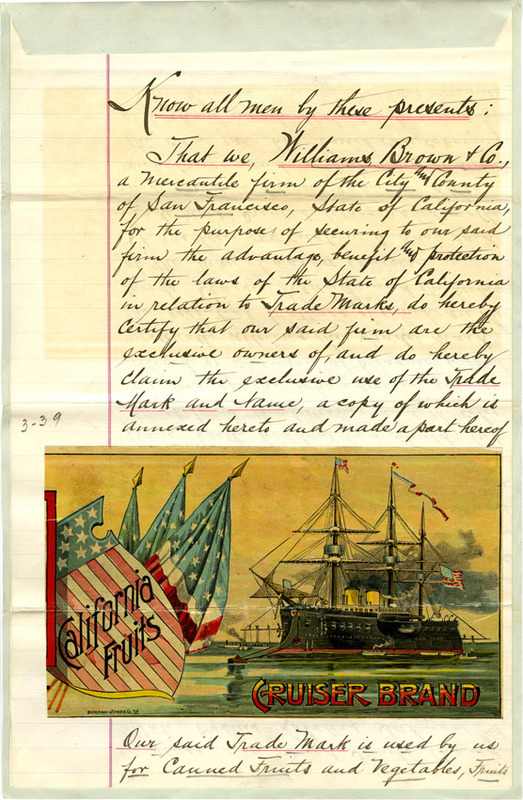 Know all men by these presents:
That we, Williams, Brown & Co.,
a Mercantile firm of the City and County
of San Francisco, State of California,
for the purpose of securing to our said
firm the advantage, benefit and protection
of the laws of the State of California
in relation to Trade Marks, do hereby
certify that our said firm are the
exclusive owners of, and do hereby
claim the exclusive use of the Trade
Mark and Name, a copy of which is
annexed hereto and made a part hereof
3-39
California
Fruits
CRUISER BRAND
Our said Trade Mark is used by us
for Canned Fruits and Vegetables, Fruits